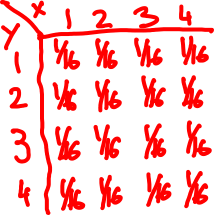 x 1 2 3 4
y
1 1/16 1/16 1/16 1/16
2 1/16 1/16 1/16 1/16
3 1/16 1/16 1/16 1/16
4 1/16 1/16 1/16 1/16